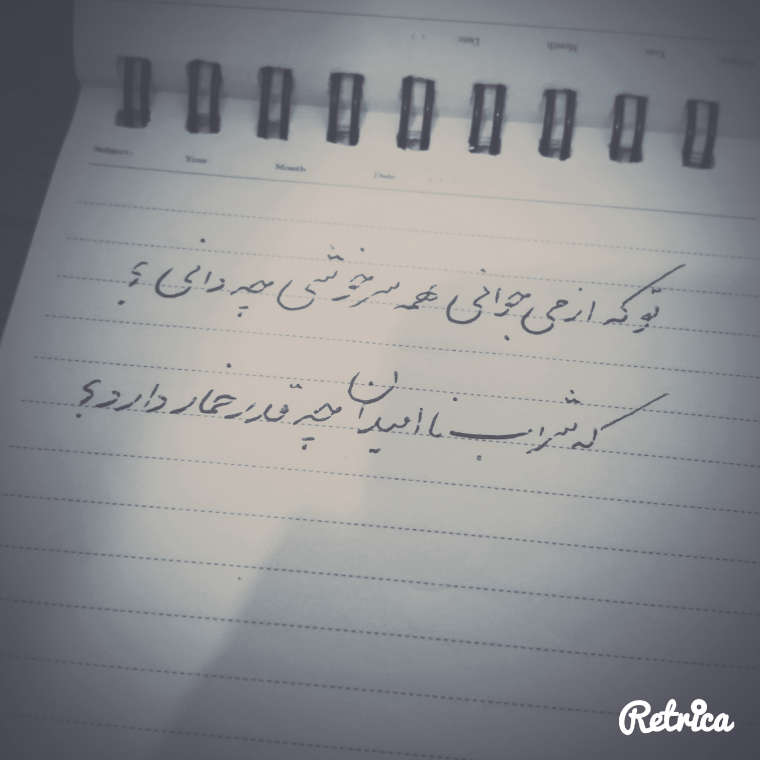 Date Month Year
Subject: Year Month Date
تو که از می جوانی همه سرخوشی چه دانی ؟
که شراب ناامیدان چه قدر خمار دارد ؟
Retrica